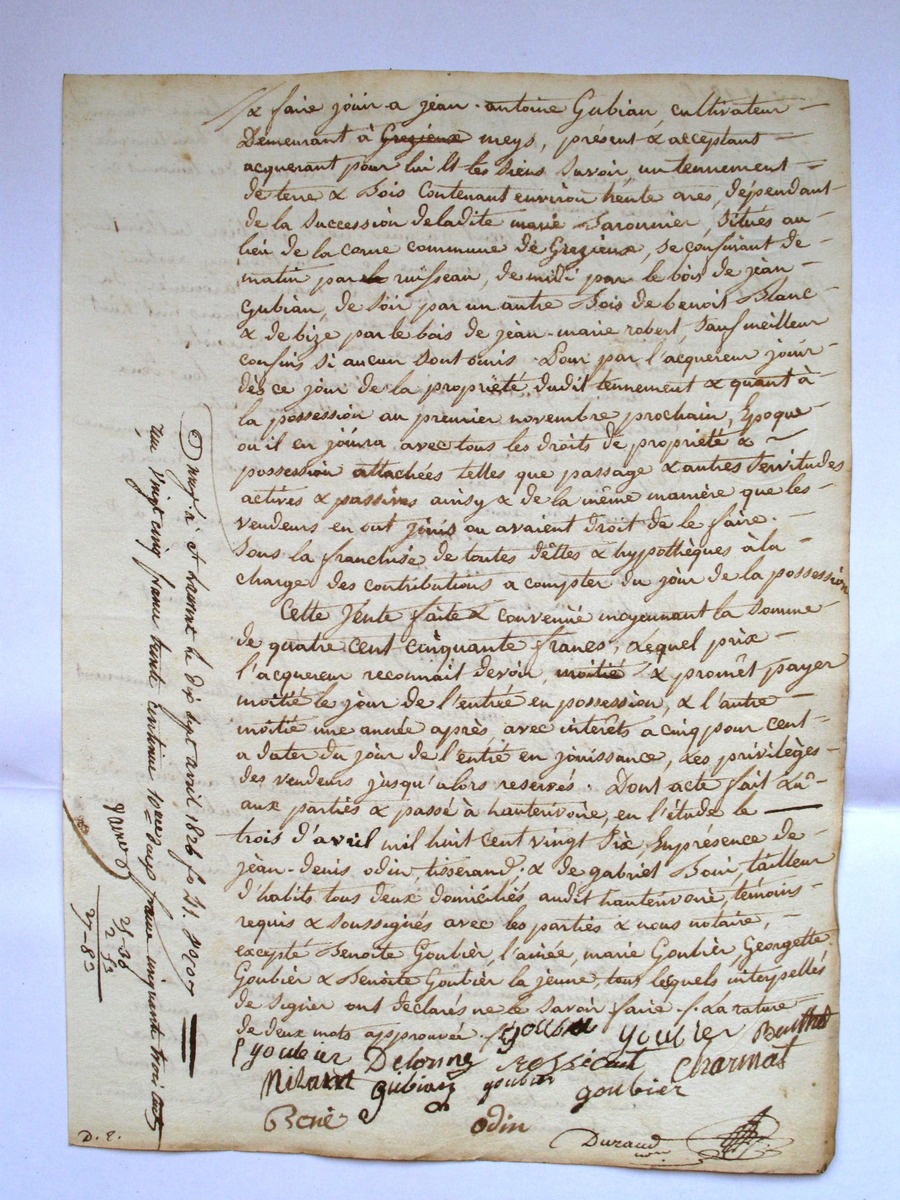 & faire jouir a jean-antoine Gubian, cultivateur
Demeurant à Grezieux meys, présent & acceptant
acquerant pour lui & les siens Savoir, un tennement
de terre & Bois Contenant environ trente ares, dépendant
de la Succession deladite marie Jaronnier, Situés au
lieu de la corne commune de Grezieux, se confinant de
matin par le ruisseau, de midi par le bois de jean
Gubian, de soir par un autre Bois de benoit Blanc
& de bize par le bois de jean-marie robert, Sauf meilleur
confins Si aucun sont omis. Pour par l'acquereur jouir
dès ce jour de la propriété dudit tennement & quant à
la possession au premier novembre prochain, Epoque
ou il en jouira avec tous les droits de propriété &
possession attachées telles que passage & autres Servitudes
actives & passives ainsy & de la même manière que les
vendeurs en ont jouis ou avaient droit de le faire.
Sous la franchise de toutes dêttes & hypothèques à la
charge des contributions a compter du jour de la possession
Cette Vente faite & convenüe moyennant la Somme
de quatre cent cinquante francs, Lequel prix
l'acquereur reconnait devoir moitié & promêt payer
moitié le jour de l'entrée en possession, & l'autre
moitié une année après, avec interêts a cinq pour cent
a dater du jour de l'entré en jouissance, Les privilèges
des vendeurs jusqu'alors reservés. Dont acte fait Lû
aux parties & passé à hauterivoire, en l'étude le
trois d'avril mil huit cent vingt Six, En présence de
jean-denis odin, tisserand, & de gabriel Boni, tailleur
d'habits tous deux domiciliés audit hauterivoire, témoins
requis & Soussignés avec les parties & nous notaire,
excepté Benoite Goubier, l'ainée, marie Goubier, Georgette
Goubier & Benoite Goubier la jeune, tous lesquels interpellés
de Signer ont déclarés ne le Savoir faire. La rature
de deux mots approuvée.
goubier
Delorme
Charmat
gubian goubier goubier
Boni odin
Durand
D. E.
et Laurent le dix sept avril 1826 fo 31.
reçu Vingt cinq francs trente centimes 10me deux francs cinquante trois cent
25-30
2 53
27-83